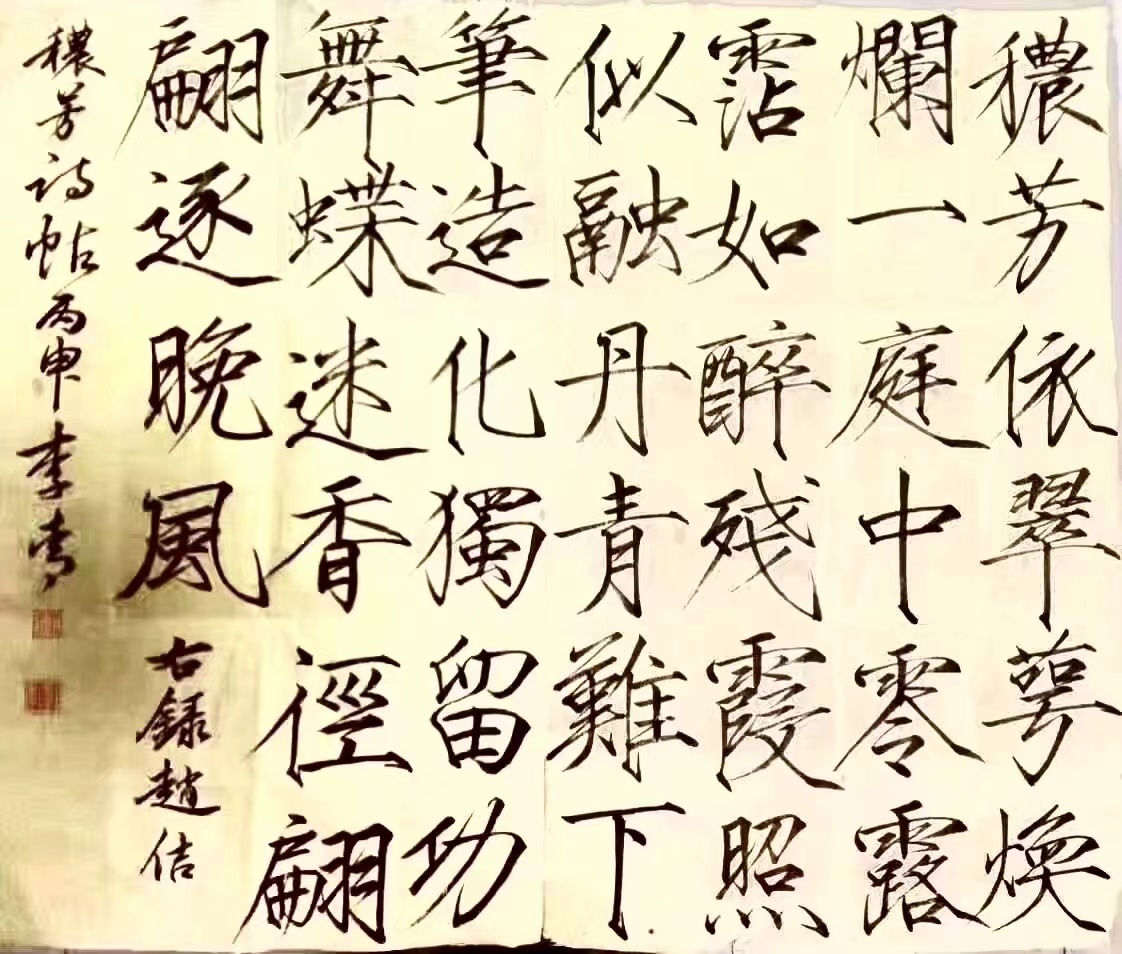 穠芳依翠萼煥
爛一庭中零露
霑如醉殘霞照
似融丹青難下
筆造化獨留功
舞蝶迷香徑翩
翩逐晚風 右録趙佶
穠芳詩帖丙申李